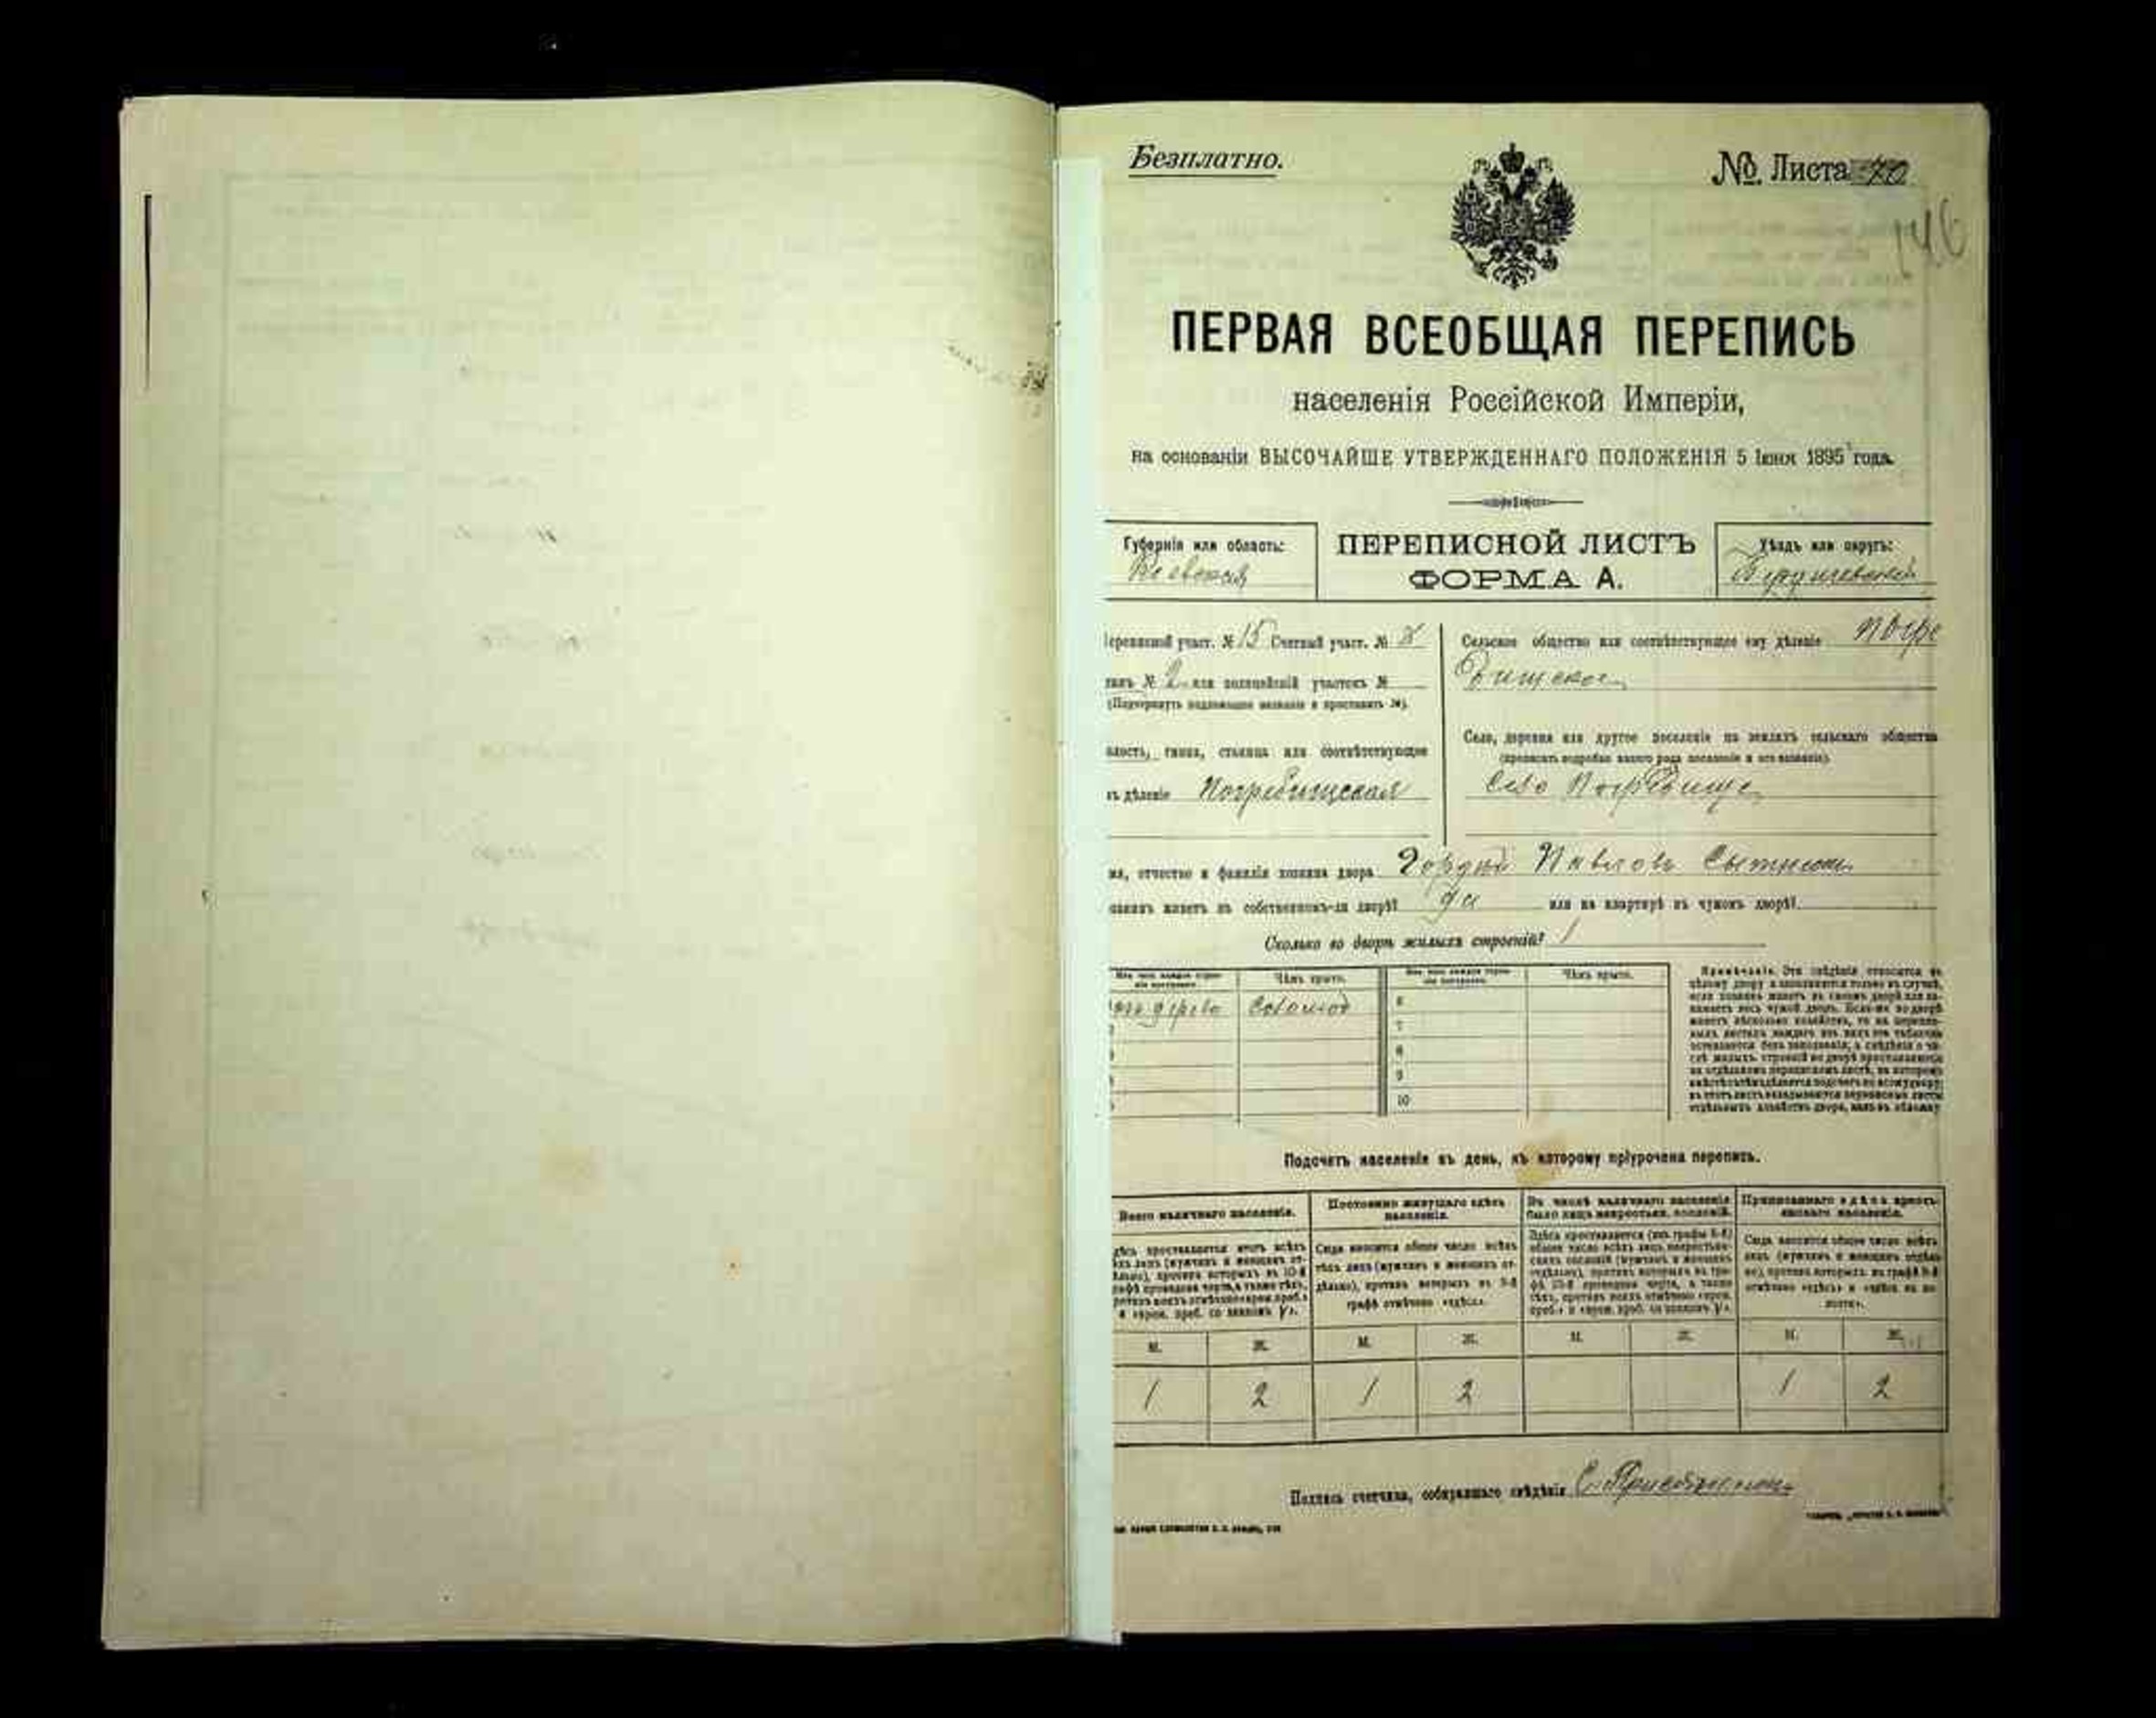 Безплатно.
№ Листа 70
146
ПЕРВАЯ ВСЕОБЩАЯ ПЕРЕПИСЬ
населенія Россійской Имперіи,
на основаніи ВЫСОЧАЙШЕ УТВЕРЖДЕННАГО ПОЛОЖЕНІЯ 5 Іюня 1895 года.
Губернія или область:
Кіевская
ПЕРЕПИСНОЙ ЛИСТЪ
ФОРМА А.
Уѣздъ или округъ:
Бердичевскій
Переписной участ. № 15 Счетный участ. №
танъ № 2 или полицейскій участокъ №
(Подчеркнуть подлежащее названіе и проставить №).
олость, гмина, станица или соотвѣтствующее
ъ дѣленіе Погребищская
Сельское общество или соотвѣтствующее ему дѣленіе Погре
бищское
Село, деревня или другое поселеніе на земляхъ сельскаго общества
(прописать подробно какого рода поселеніе и его названіе).
Село Погребище
мя, отчество и фамилія хозяина двора Гордій Павловъ
озяинъ живетъ въ собственномъ-ли дворѣ? да или на квартирѣ въ чужомъ дворѣ?
Сколько во дворѣ жилыхъ строеній? 1
Изъ чего каждое строе-
ніе построено.
Чѣмъ крыто.
Изъ чего каждое строе-
ніе построено.
Чѣмъ крыто.
дерево Соломой
6
7
8
9
10
Примѣчаніе. Эти свѣдѣнія относятся къ
цѣлому двору и заполняются только въ случаѣ,
если хозяинъ живетъ въ своемъ дворѣ или за-
нимаетъ весь чужой дворъ. Если-же во дворѣ
имѣетъ нѣсколько хозяйствъ, то на перепис-
ныхъ листахъ каждаго изъ нихъ эта табличка
оставляется безъ заполненія, а свѣдѣнія о чи-
слѣ жилыхъ строеній во дворѣ проставляются
на отдѣльномъ переписномъ листѣ, на которомъ
вмѣстѣ съ тѣмъ дѣлается подсчетъ по всему двору;
въ этотъ листъ вкладываются переписные листы
отдѣльныхъ хозяйствъ двора, какъ въ обложку
Подсчетъ населенія въ день, къ которому пріурочена перепись.
Всего наличнаго населенія.
Постоянно живущаго здѣсь
населенія.
Въ числѣ наличнаго населенія
было лицъ некрестьян. сословій.
Приписаннаго здѣсь кресть-
янскаго населенія.
дѣсь проставляется итогъ всѣхъ
хъ лицъ (мужчинъ и женщинъ от-
дѣльно), противъ которыхъ въ 10-й
рафѣ проведена черта, а также тѣхъ,
ротивъ коихъ отмѣчено «врем. преб.»
и «врем. преб. со знакомъ V».
Сюда вносится общее число всѣхъ
тѣхъ лицъ (мужчинъ и женщинъ от-
дѣльно), противъ которыхъ въ 9-й
графѣ отмѣчено «здѣсь».
Здѣсь проставляется (изъ графы 8-й)
общее число всѣхъ лицъ некрестьян-
скихъ сословій (мужчинъ и женщинъ
отдѣльно), противъ которыхъ въ гра-
фѣ 10-й проведена черта, а также
тѣхъ, противъ коихъ отмѣчено «врем.
преб.» и «врем. преб. со знакомъ V».
Сюда вносится общее число всѣхъ
лицъ (мужчинъ и женщинъ отдѣль-
но), противъ которыхъ въ графѣ 8-й
отмѣчено «здѣсь» и «здѣсь въ во-
лости».
М. Ж. М. Ж. М. Ж. М. Ж.
1 2 1 2 1 2
Подпись счетчика, собиравшаго свѣдѣнія